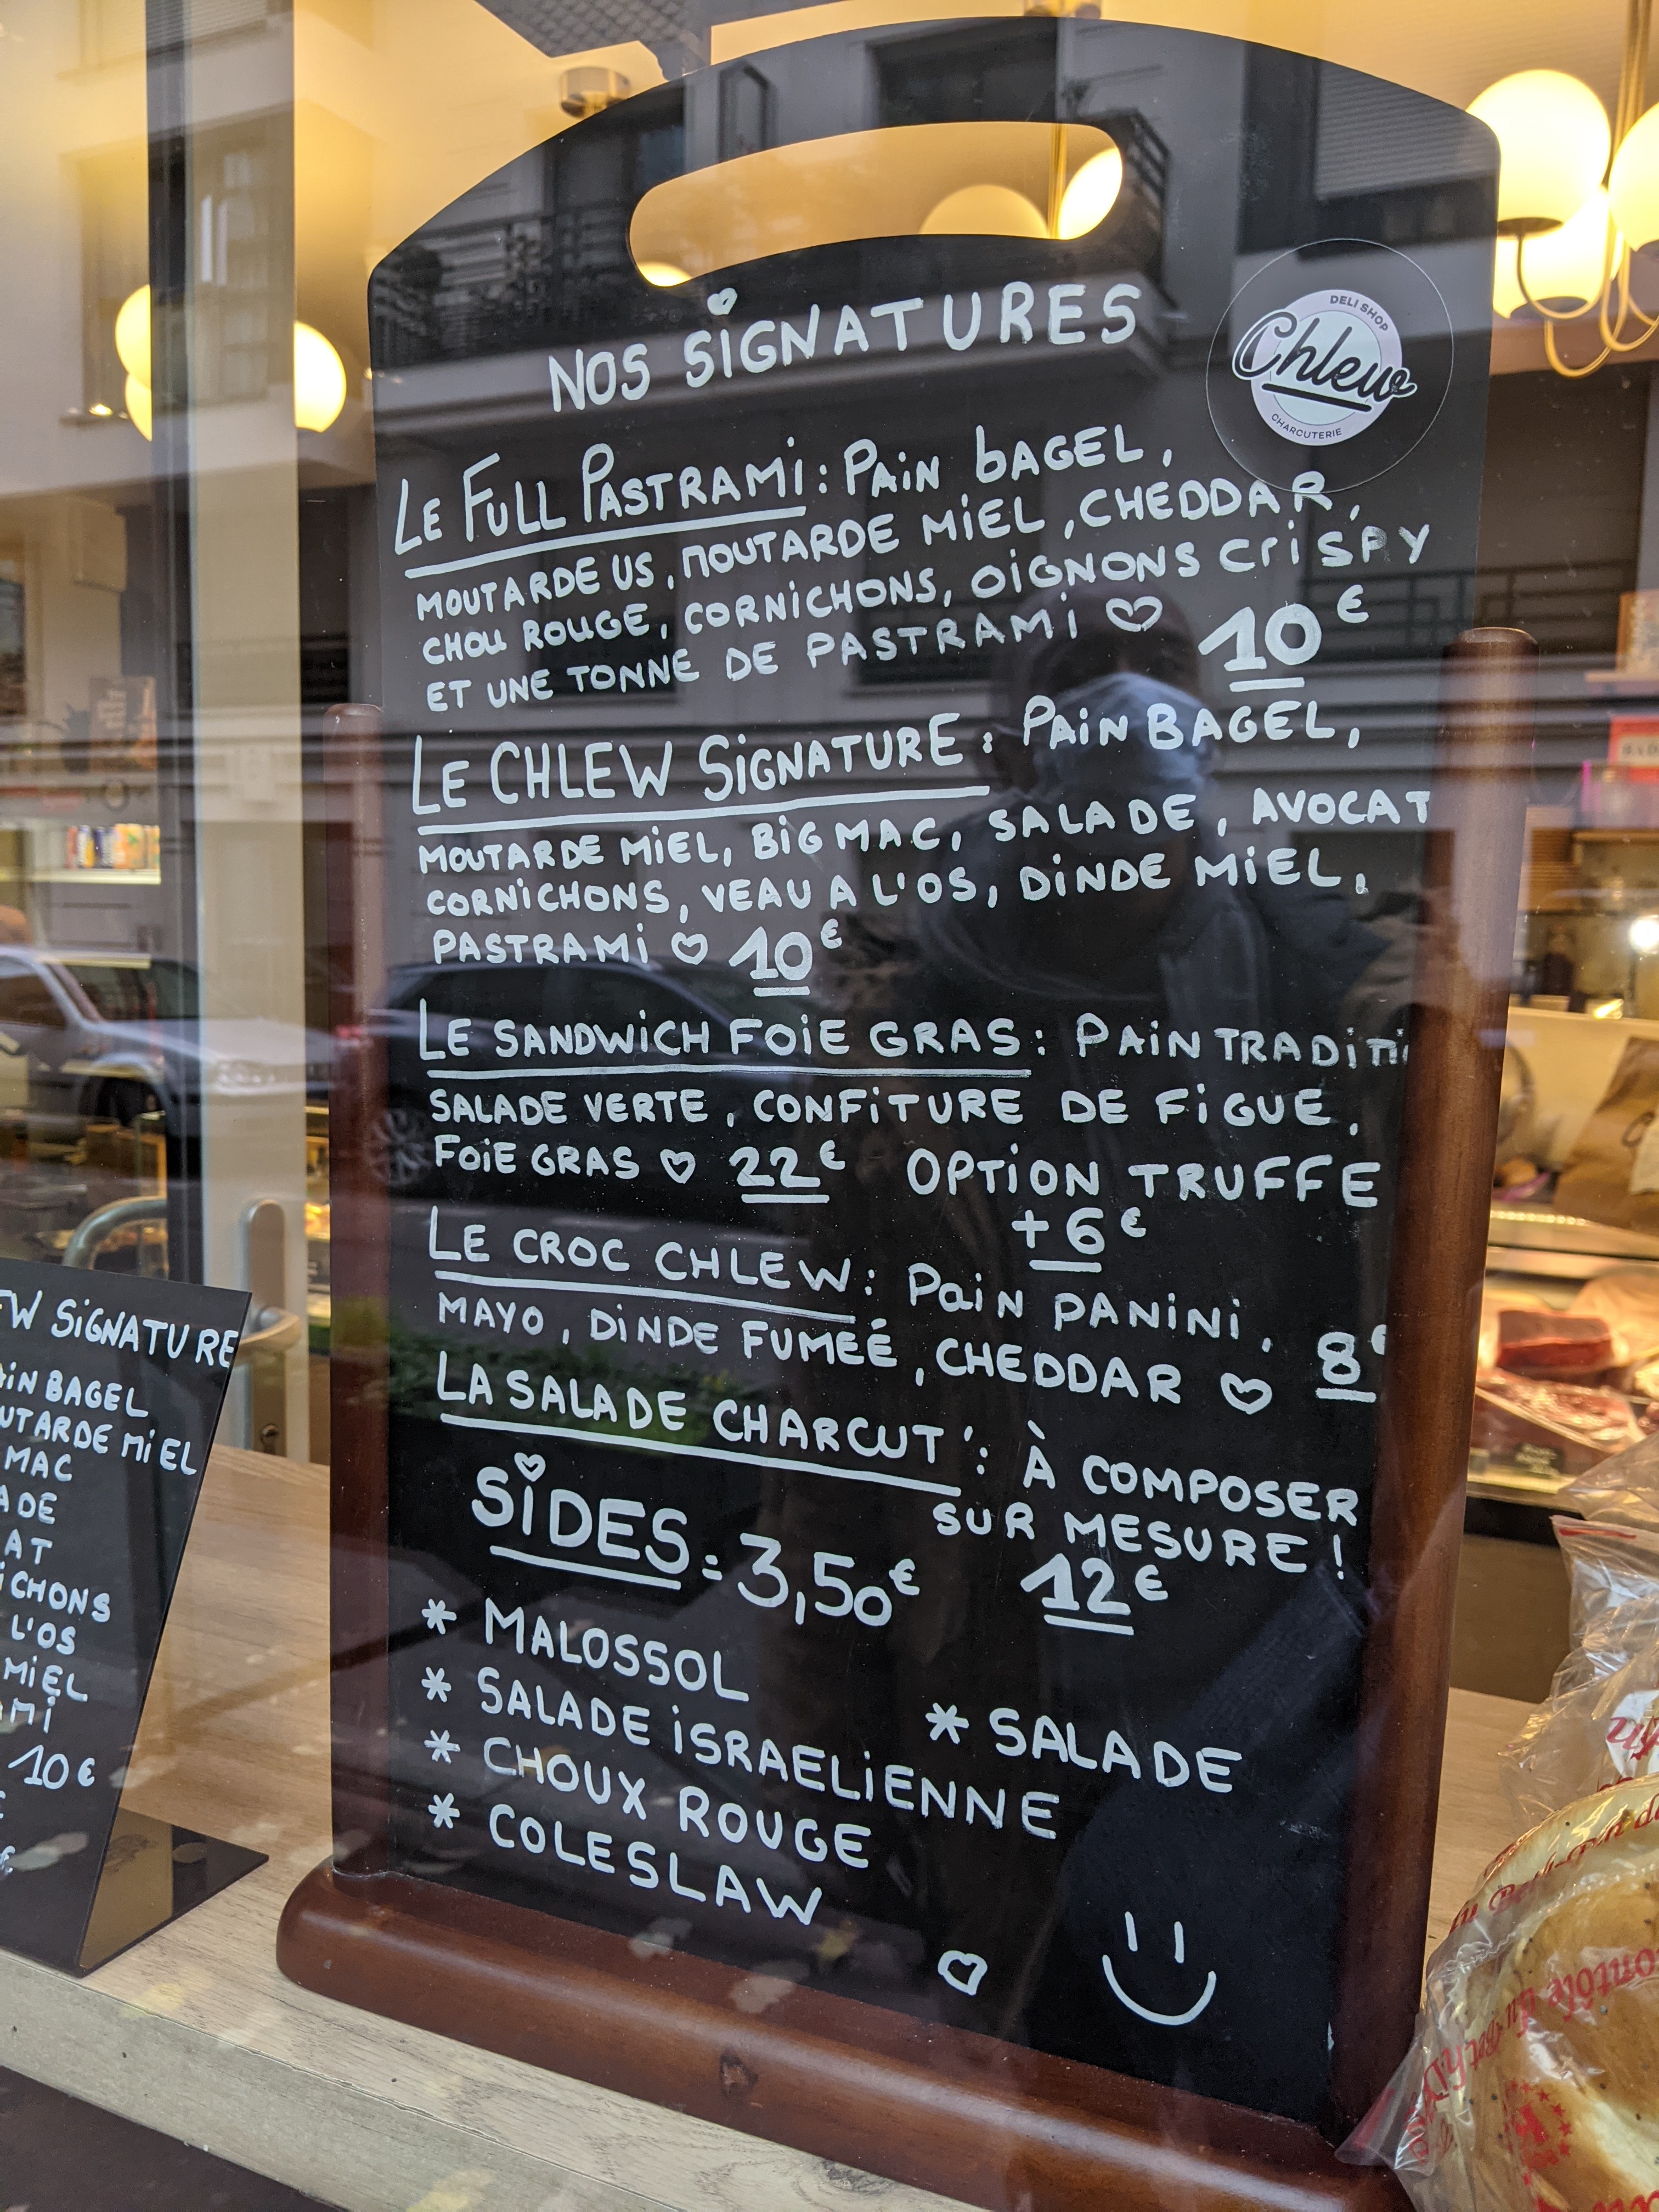 NOS SiGNATURES
DELI SHOP
Chlew
CHARCUTERIE
LE FULL PASTRAMi : PAiN bAGEL,
MOUTARDE US, MOUTARDE MiEL, CHEDDAR,
CHOU ROUGE, CORNiCHONS, OiGNONS CriSPY
ET UNE TONNE DE PASTRAMi ♡ 10€
LE CHLEW SiGNATURE : PAiN BAGEL,
MOUTARDE MiEL, BiG MAC, SALADE, AVOCAT
CORNiCHONS, VEAU A L'OS, DiNDE MiEL,
PASTRAMi ♡ 10€
LE SANDWiCH FOiE GRAS : PAiN TRADiTi
SALADE VERTE, CONFiTURE DE FiGUE,
FOiE GRAS ♡ 22€ OPTiON TRUFFE
+6€
LE CROC CHLEW : PaiN PANiNi,
MAYO, DiNDE FUMÉÉ, CHEDDAR ♡ 8€
LA SALADE CHARCUT' : À COMPOSER
SUR MESURE !
12€
SiDES : 3,50€
* MALOSSOL
* SALADE iSRAELiENNE
* CHOUX ROUGE
* COLESLAW
* SALADE
EW SiGNATURE
AiN BAGEL
UTARDE MiEL
MAC
ADE
AT
iCHONS
L'OS
MiEL
AMi
10€
€
€